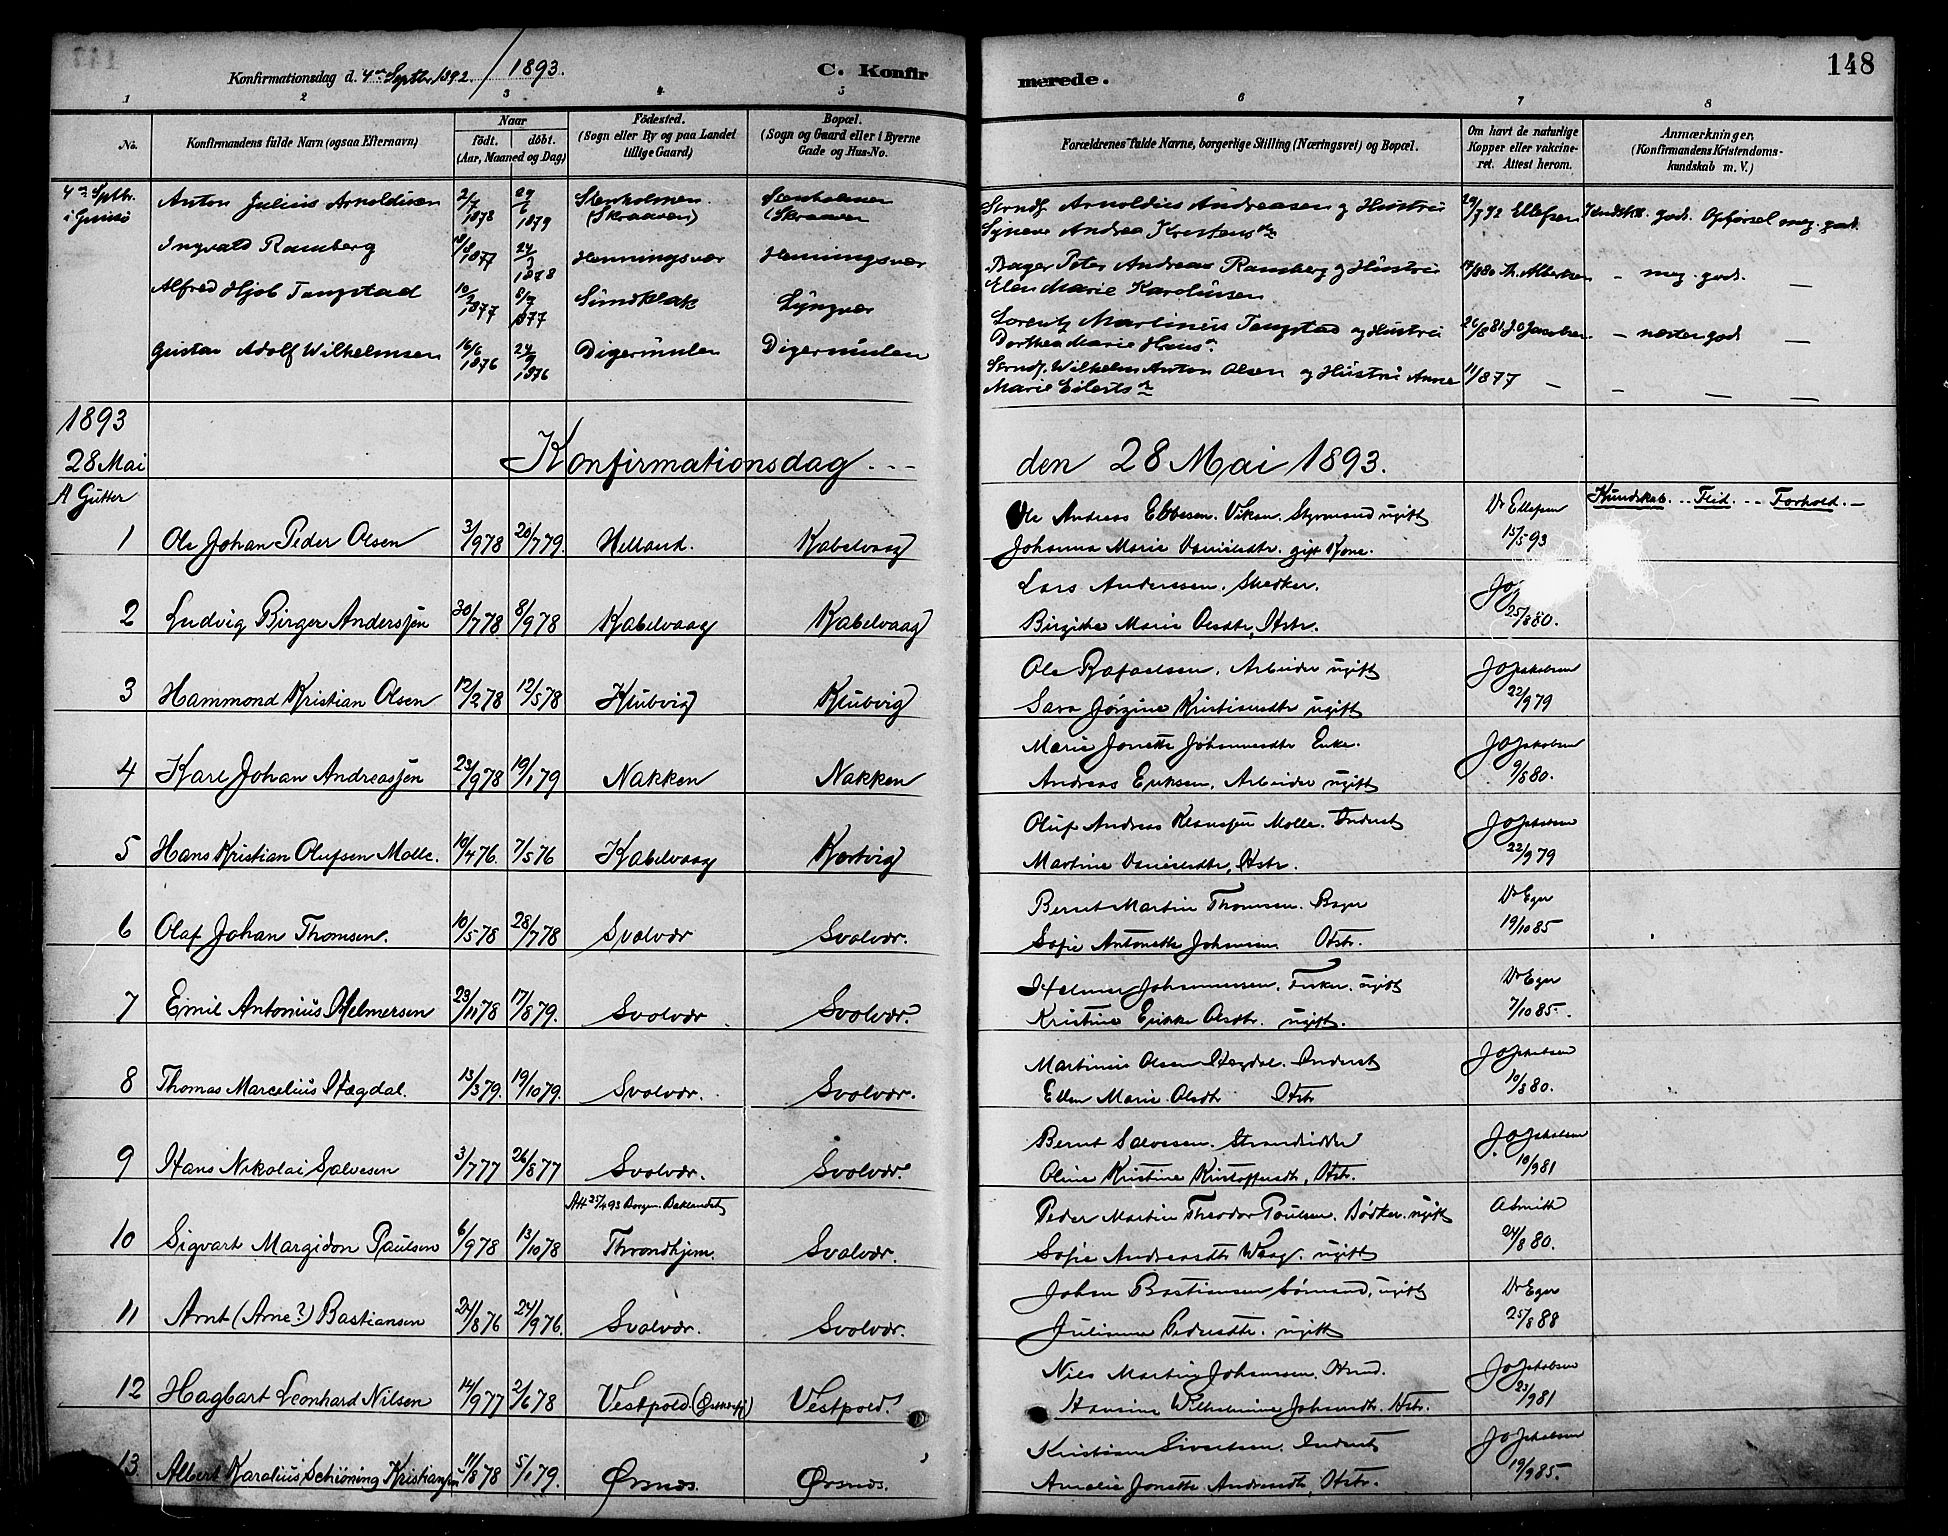 148
Konfirmationsdag d. 4de Septbr. 1892 / 1893. C. Konfirmerede.
1 2 3 4 5 6 7 8
No. Konfirmandens fulde Navn (ogsaa Efternavn) Naar födt. döbt. (Aar, Maaned og Dag) Födested. (Sogn eller By og paa Landet tillige Gaard) Bopæl. (Sogn og Gaard eller i Byerne Gade og Hus-No. Forældrenes fulde Navne, borgerlige Stilling (Næringsvei) og Bopæl. Om havt de naturlige Kopper eller vakcineret. Attest herom. Anmærkninger, (Konfirmandens Kristendomskundskab m. V.)
4de Septbr. Anton Julius Arnoldsen 2/7 1878 29/6 1879 Stenholmen (Skraaven) Stenholmen (Skraaven Strndf. Arnoldus Andreasen og Hustru 29/7 92 Ellefsen Kundsk. god. Opførsel meg. god.
Syneve Andrea Kristensdr
Ingvald Ramberg 1877 24/3 1878 Henningsvær Henningsvær Bager Peter Andreas Ramberg og Hustru 17/8 80 Th. Albertsen — meg. god. —
Elen Marie Karolussen
Alfred Hjob Tangstad 10/2 1877 8/7 1877 Sundklak Lyngvær Lorentz Martinus Tangstad og Hustru 26/8 81 J.O. Jacobsen — næsten god —
Dorthea Marie Hansdr
Gustav Adolf Wilhelmsen 16/6 1876 24/9 1876 Digermulen Digermulen Strndf. Wilhelm Anton Olsen og Hustru Anne 11/8 77 — — — —
Marie Eilertsdr
1893
28 Mai Konfirmationsdag --- den 28 Mai 1893.
A Gutter Kundskab. -- Flid. -- Forhold. —
1 Ole Johan Peder Olsen 3/9 78 20/7 79. Helland. Kabelvaag Ole Andreas Ebbesen. Viken. Styrmand ugift Dr Ellefsen
Johanna Marie Danielsdtr. gift Kone. 15/5 93
2 Ludvig Birger Anderssen 30/7 78 8/9 78 Kabelvaag Kabelvaag Lars Anderssen. Snedker. Jo
Birgitte Marie Olsdtr, Hstr. 25/8 80.
3 Hammond Kristian Olsen 12/2 78 12/5 78 Klubvig Klubvig Ole Rafaelsen. Arbeider ugift JOJakobsen
Sara Jørgine Kristiansdtr ugift 22/9 79
4 Karl Johan Andreassen 23/9 78 19/1 79 Nakken Nakken Marie Jonette Johannesdtr Enke. JOJakobsen
Andreas Eriksen, Arbeider ugift 9/8 80.
5 Hans Kristian Olufsen Molle. 19/4 76. 7/5 76 Kabelvaag Oluf Andreas Klaussen Molle. Inderst JOJakobsen
Martine Danielsdtr, Hstr. 22/9 79
6 Olaf Johan Thomsen. 10/5 78 28/7 78 Svolvær Svolvær. Bernt Martin Thomsen. Bager Dr Eger
Sofie Antonette Johansen. Hstr. 19/10 85
7 Emil Antonius Helmersen 23/11 78 17/8 79. Svolvær Svolvær. Helmer Johannessen. Fisker. ugift Dr Eger
Kristine Erikke Olsdtr. ugift. 7/10 85.
8 Thomas Marcelius Hægdal. 13/3 79. 19/10 79. Svolvær. Svolvær. Martinus Olsen Hægdal. Inderst JOJakobsen
Ellen Marie Olsdtr Hstr 10/8 80.
9 Hans Nikolai Salvesen 3/7 77 26/8 77 Svolvær. Svolvær Bernt Salvesen. Strandsidder JOJakobsen
Oline Kristine Kristoffersdtr, Hstr. 10/9 81
Att 25/4 93 Borgen. Baklandet
10 Sigvart Margidon Paulsen 6/9 78 13/10 78 Throndhjem. Svolvær. Peder Martin Theodor Poulsen. Bødker. ugift ASmith
Sofie Andreasdtr Waag. ugift 24/8 80.
11 Arnt (Arne?) Bastiansen 24/8 76 24/9 76. Svolvær. Svolvær. Johan Bastiansen Sømand, ugift Dr Eger
Julianna Pedersdtr. ugift 25/8 88
12 Hagbart Leonhard Nilsen 14/9 77 2/6 78 Vestpold. Vestpold. Nils Martin Johansen. JOJakobsen
Hansine Wilhelmine Johansdtr. Hstr. 23/9 81
13 Albert Karolius Schiøning Kristiansen 11/8 78 5/1 79. Ørsnæs. Ørsnæs. Kristian Sivertsen. Inderst JOJakobsen
Amalie Jonette Andreasdtr, Hstr. 19/9 85.